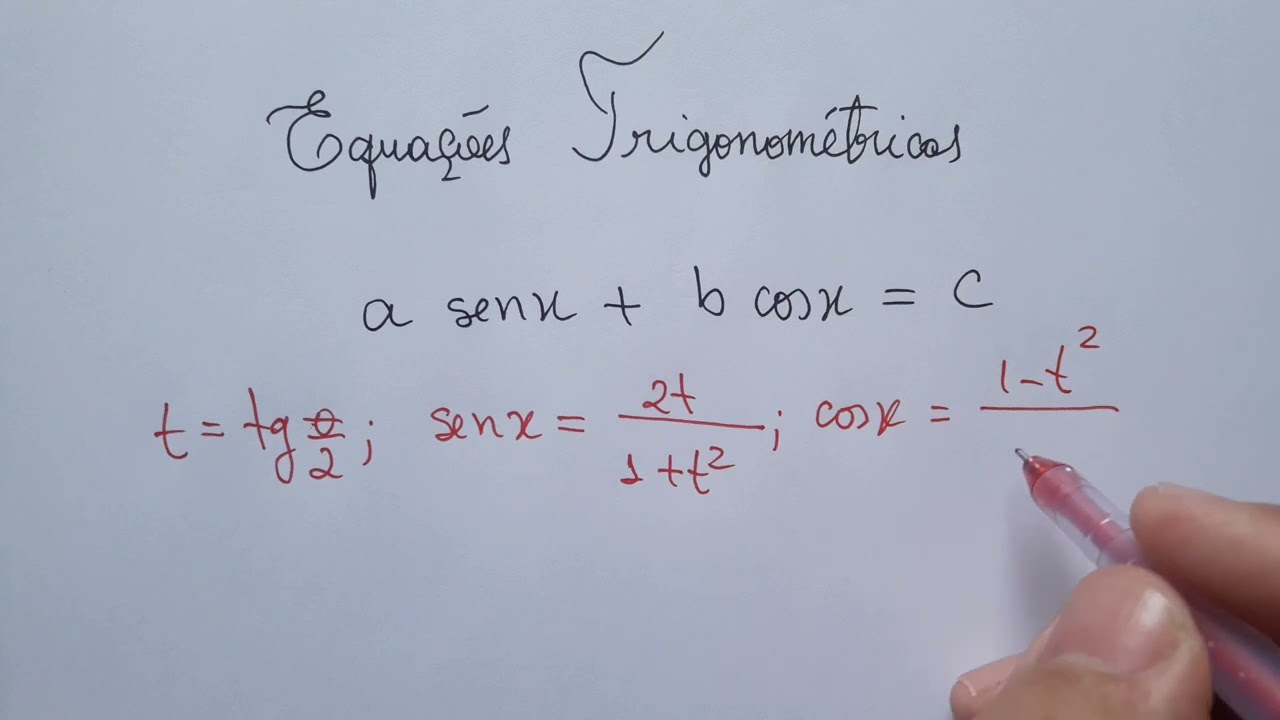 Equações Trigonométricas
a senx + b cosx = c
t = tg θ/2 ; senx = 2t/1+t² ; cosx = 1-t²/